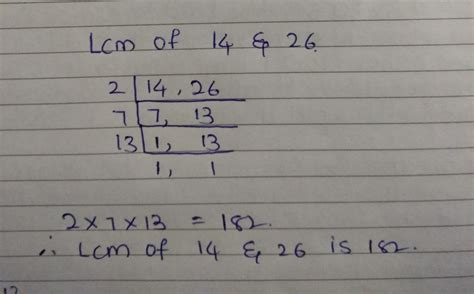 Lcm of 14 & 26.
2 | 14, 26
7 | 7, 13
13 | 1, 13
1, 1
2 × 7 × 13 = 182.
∴ Lcm of 14 & 26 is 182.